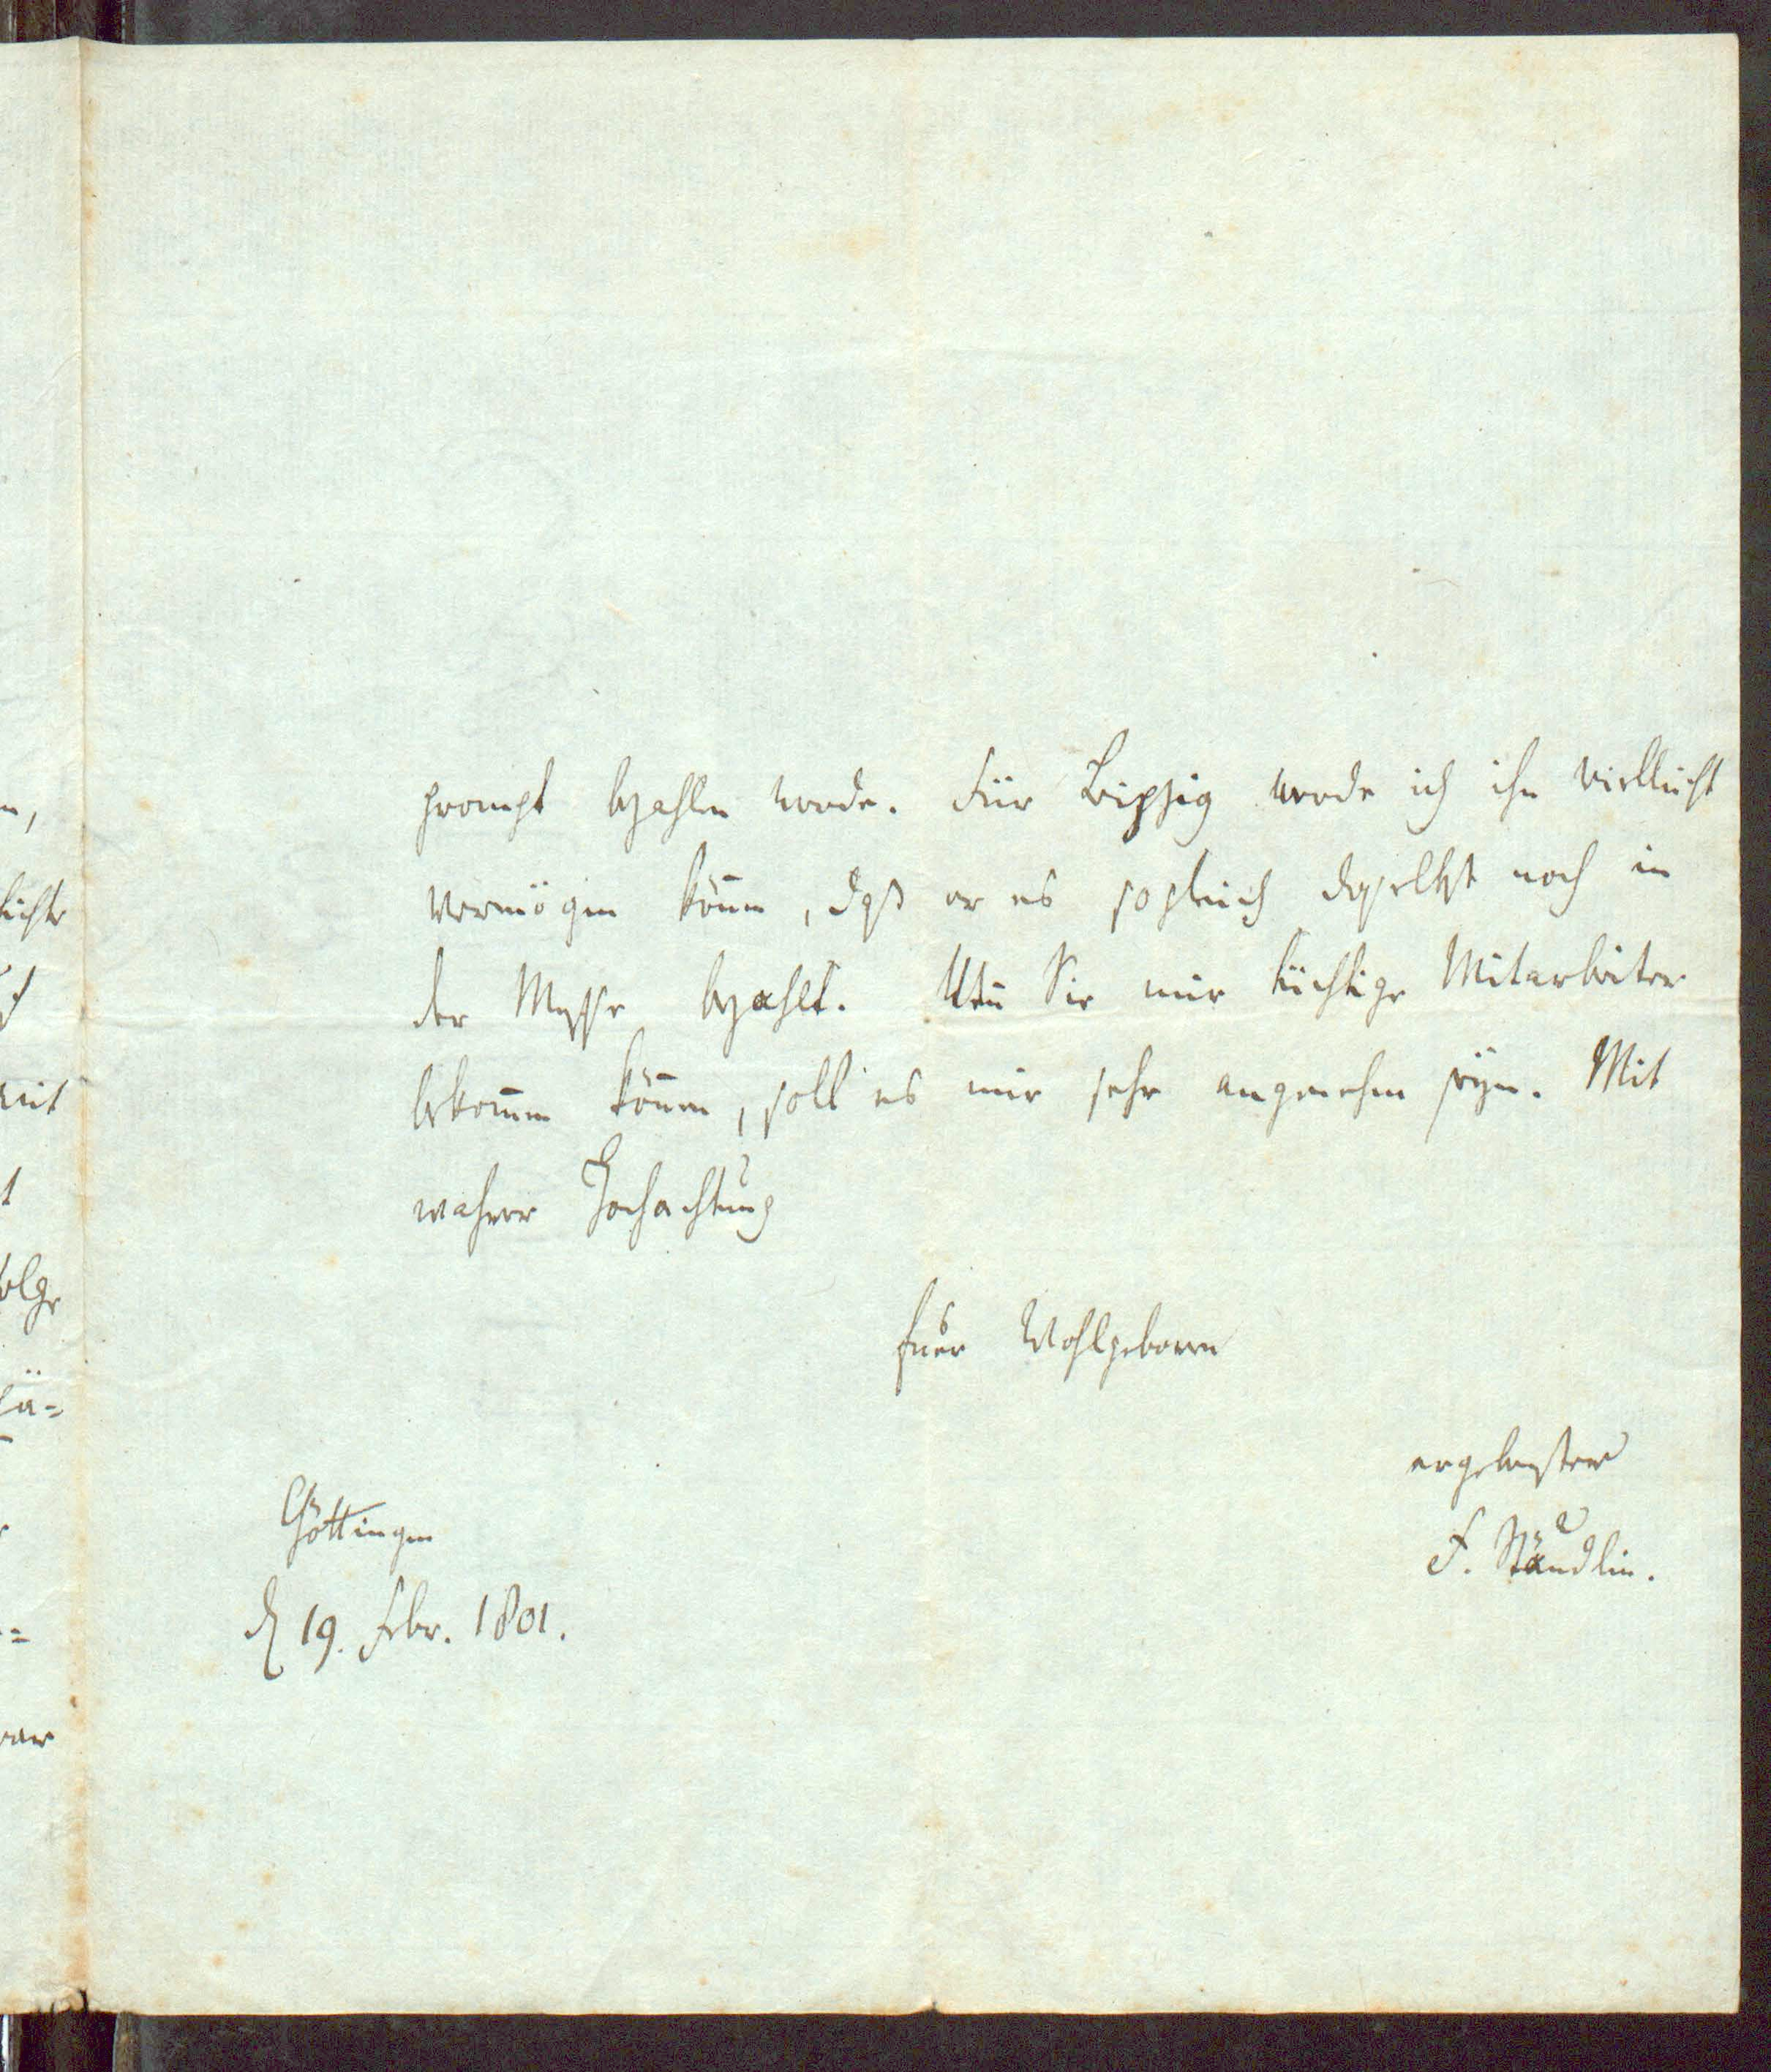 prompt bezahlen werde. Für Leipzig werde ich ihn vielleicht
vermögen können, daß er es sogleich daselbst noch in
der Messe bezahlt. Weñ Sie mir tüchtige Mitarbeiter
bekom̄en kön̄en, soll es mir sehr angenehm seyn. Mit
wahrer Hochachtung
Euer Wohlgeboren
ergebenster
F. Stäudlin.
Göttingen
d 19. Febr. 1801.